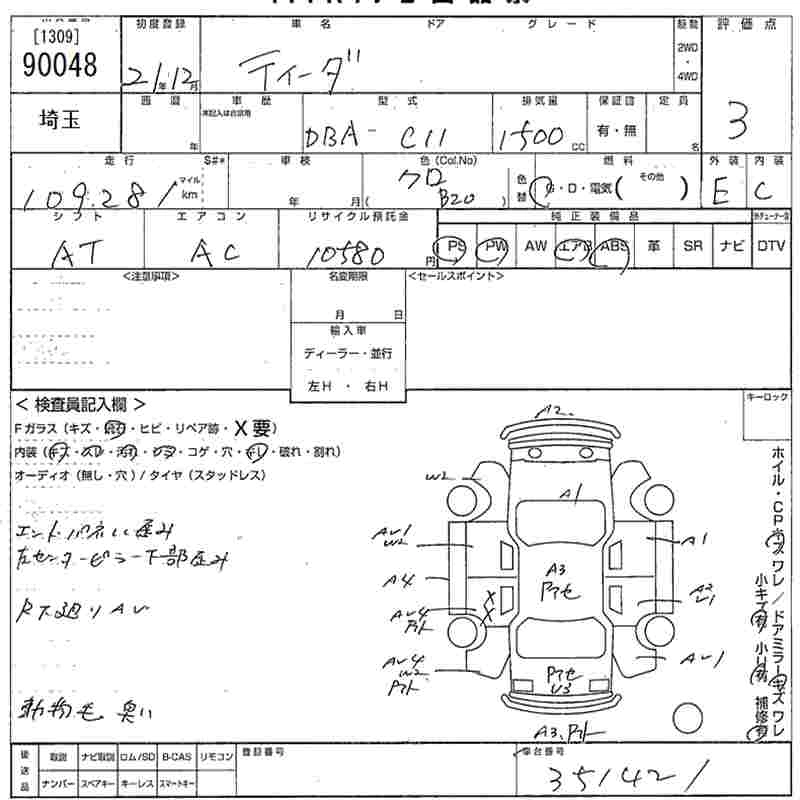 [1309]
90048
初度登録 車名 ドア グレード 駆動 評価点
21年12月 ティーダ 2WD・4WD
埼玉
西暦 車歴 型式 排気量 保証書 定員
未記入は自家用
年 DBA- C11 1500 CC 有・無 名
3
走行 S#* 車検 色(Col.No) 燃料 外装 内装
109,281 マイル km 年 月( クロ B20 ) 色替 G・D・電気( その他 ) E C
シフト エアコン リサイクル預託金 純正装備品
AT AC 10580 円 PS PW AW エアB ABS 革 SR ナビ DTV
<注意事項> 名変期限 <セールスポイント>
月 日
輸入車
ディーラー・並行
左H ・ 右H
< 検査員記入欄 > キーロック
Fガラス(キズ・ ・ヒビ・リペア跡・X要)
内装(キズ・スレ・汚れ・ ・コゲ・穴・ ・破れ・割れ)
オーディオ(無し・穴)/タイヤ(スタッドレス)
エンドパネル歪み
左センターピラー下部歪み
R下廻りAU
動物毛 臭い
A2
W2
A1
AU1
W2
A1
A4
A3
アセ
A2
U1
X
X
AU4
アト
AU4
W2
アト
アセ
U3
AU1
A3、アト
ホイル・CPキズ ワレ/ドアミラーキズ ワレ
小キズ有 小U有 補修有
後送品 取説 ナビ取説 ロム/SD B-CAS リモコン 登録番号 車台番号
ナンバー スペアキー キーレス スマートキー 351421